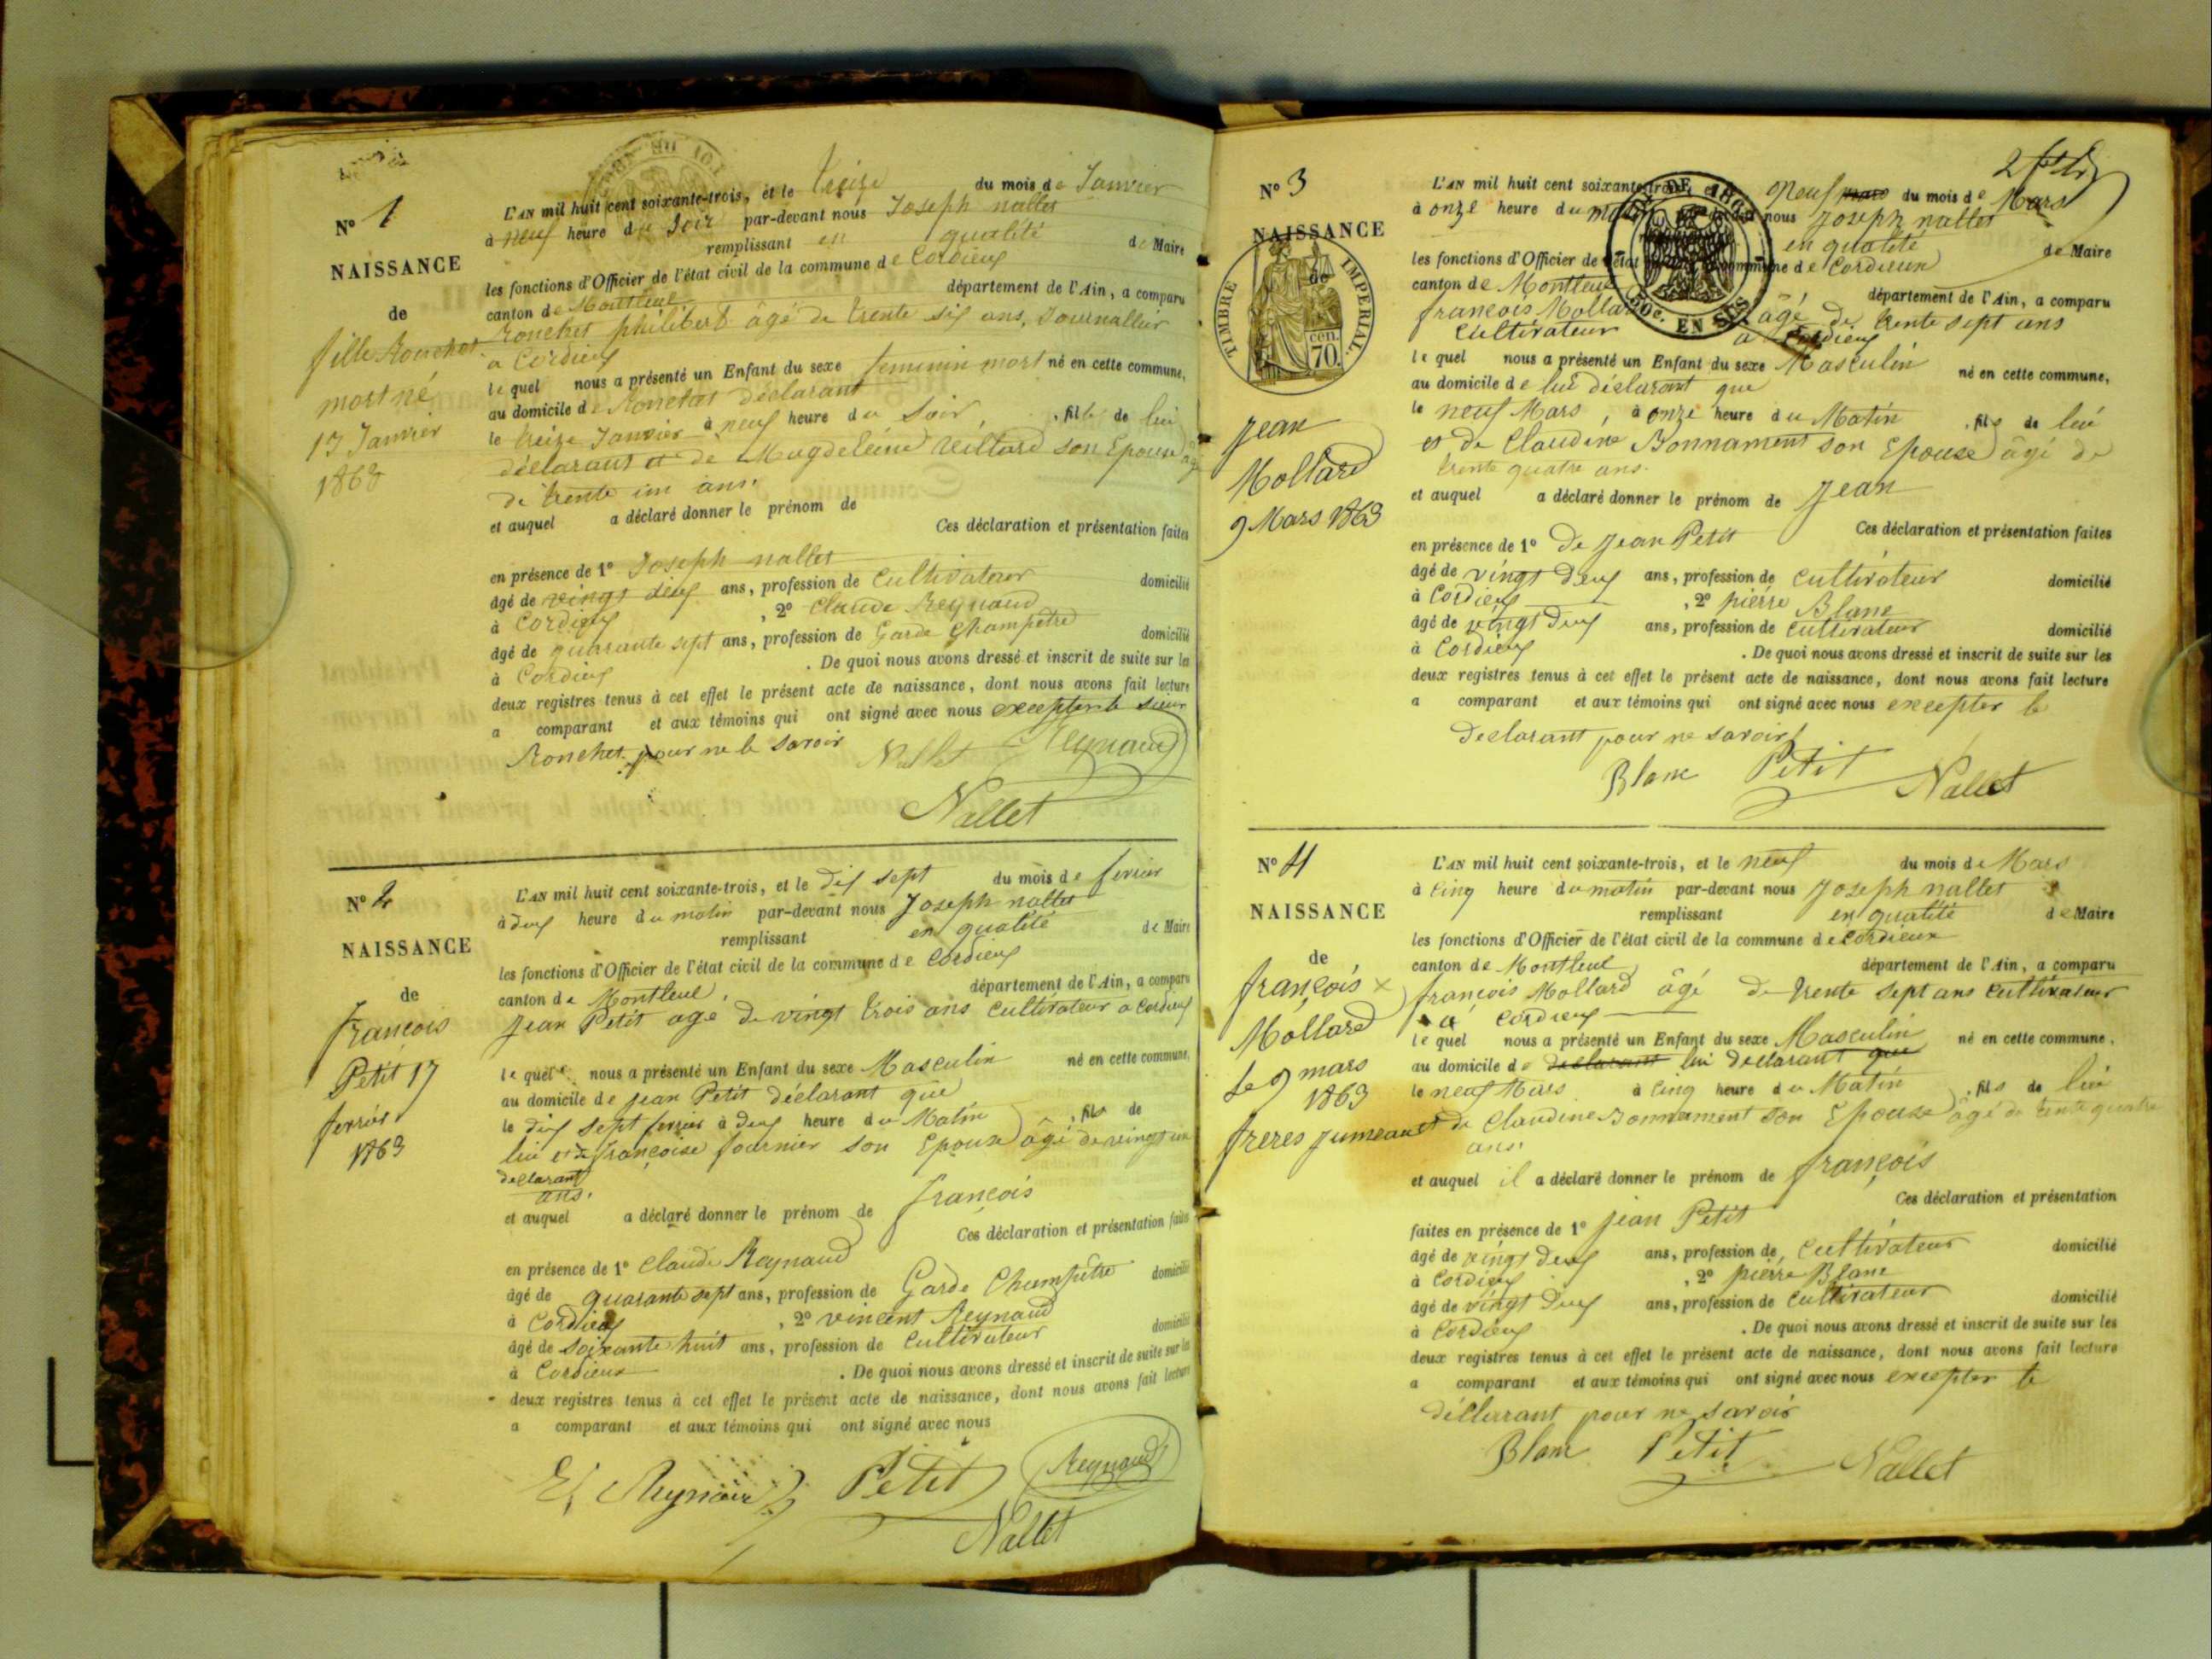 N° 1
NAISSANCE
de
fille Ronchet
mort né
13 Janvier
1863
L'AN mil huit cent soixante-trois, et le treize du mois de Janvier
à neuf heure du Soir par-devant nous Joseph nallet
remplissant en qualité de Maire
les fonctions d'Officier de l'état civil de la commune de Cordieux
canton de Montluel département de l'Ain, a comparu
Ronchet philibert âgé de trente six ans, Journallier
a Cordieux
lequel nous a présenté un Enfant du sexe feminin mort né en cette commune,
au domicile de Ronchet déclarant
le treize Janvier à neuf heure du Soir , fille de lui
déclarant et de Magdeleine son Epouse âgé
de trente un ans.
et auquel a déclaré donner le prénom de
Ces déclaration et présentation faites
en présence de 1° Joseph nallet
âgé de vingt deux ans, profession de Cultivateur domicilié
à Cordieux , 2° Claude Reynaud
âgé de quarante sept ans, profession de Garde Champetre domicilié
à Cordieux . De quoi nous avons dressé et inscrit de suite sur les
deux registres tenus à cet effet le présent acte de naissance, dont nous avons fait lecture
a comparant et aux témoins qui ont signé avec nous excepter le sieur
Ronchet pour ne le savoir Nallet Reynaud
Nallet
N° 2
NAISSANCE
de
François
Petit 17
fevrier
1863
L'AN mil huit cent soixante-trois, et le dix sept du mois de fevrier
à deux heure du matin par-devant nous Joseph nallet
remplissant en qualité de Maire
les fonctions d'Officier de l'état civil de la commune de Cordieux
canton de Montluel, département de l'Ain, a comparu
Jean Petit age de vingt trois ans cultivateur a Cordieux
lequel nous a présenté un Enfant du sexe Masculin né en cette commune,
au domicile de Jean Petit déclarant que
le dix sept fevrier à deux heure du Matin , fils de
lui et de françoise fournier son Epouse âgé de vingt un
declarant
ans.
et auquel a déclaré donner le prénom de françois
Ces déclaration et présentation faites
en présence de 1° Claude Reynaud
âgé de quarante sept ans, profession de Garde Champêtre domicilié
à Cordieux , 2° vincent Reynaud
âgé de soixante huit ans, profession de Cultivateur domicilié
à Cordieux . De quoi nous avons dressé et inscrit de suite sur les
deux registres tenus à cet effet le présent acte de naissance, dont nous avons fait lecture
a comparant et aux témoins qui ont signé avec nous
Reynaud Petit Reynaud
Nallet
N° 3
NAISSANCE
de
TIMBRE IMPERIAL.
cen.
70.
Jean
Mollard
9 Mars 1863
L'AN mil huit cent soixante-trois, et le neuf mars du mois de Mars
à onze heure du matin nous Joseph nallet
en qualité de Maire
les fonctions d'Officier de l'état commune de Cordieux
canton de Montluel département de l'Ain, a comparu
50c. EN SUS
francois Mollard âgé de trente sept ans
Cultivateur a Cordieux
lequel nous a présenté un Enfant du sexe Masculin né en cette commune,
au domicile de lui déclarant que
le neuf Mars, à onze heure du Matin , fils de lui
et de Claudine Bonnament son Epouse âgé de
trente quatre ans.
et auquel a déclaré donner le prénom de Jean
Ces déclaration et présentation faites
en présence de 1° De Jean Petit
âgé de vingt deux ans, profession de Cultivateur domicilié
à Cordieux , 2° pierre Blanc
âgé de vingt deux ans, profession de Cultivateur domicilié
à Cordieux . De quoi nous avons dressé et inscrit de suite sur les
deux registres tenus à cet effet le présent acte de naissance, dont nous avons fait lecture
a comparant et aux témoins qui ont signé avec nous excepter le
Declarant pour ne savoir
Blanc Petit Nallet
N° 4
NAISSANCE
de
françois
Mollard
Le 9 mars
1863
freres jumeaux
L'AN mil huit cent soixante-trois, et le neuf du mois de Mars
à cinq heure du matin par-devant nous Joseph nallet
remplissant en qualité de Maire
les fonctions d'Officier de l'état civil de la commune de Cordieux
canton de Montluel département de l'Ain, a comparu
françois Mollard âgé de trente sept ans Cultivateur
a Cordieux
lequel nous a présenté un Enfant du sexe Masculin né en cette commune,
au domicile de declarant lui declarant que
le neuf Mars à cinq heure du Matin , fils de lui
et de Claudine Bonnament son Epouse âgé de trente quatre
ans.
et auquel il a déclaré donner le prénom de françois
Ces déclaration et présentation
faites en présence de 1° Jean Petit
âgé de vingt deux ans, profession de Cultivateur domicilié
à Cordieux , 2° pierre Blanc
âgé de vingt deux ans, profession de Cultivateur domicilié
à Cordieux . De quoi nous avons dressé et inscrit de suite sur les
deux registres tenus à cet effet le présent acte de naissance, dont nous avons fait lecture
a comparant et aux témoins qui ont signé avec nous excepter le
déclarant pour ne savoir
Blanc Petit Nallet